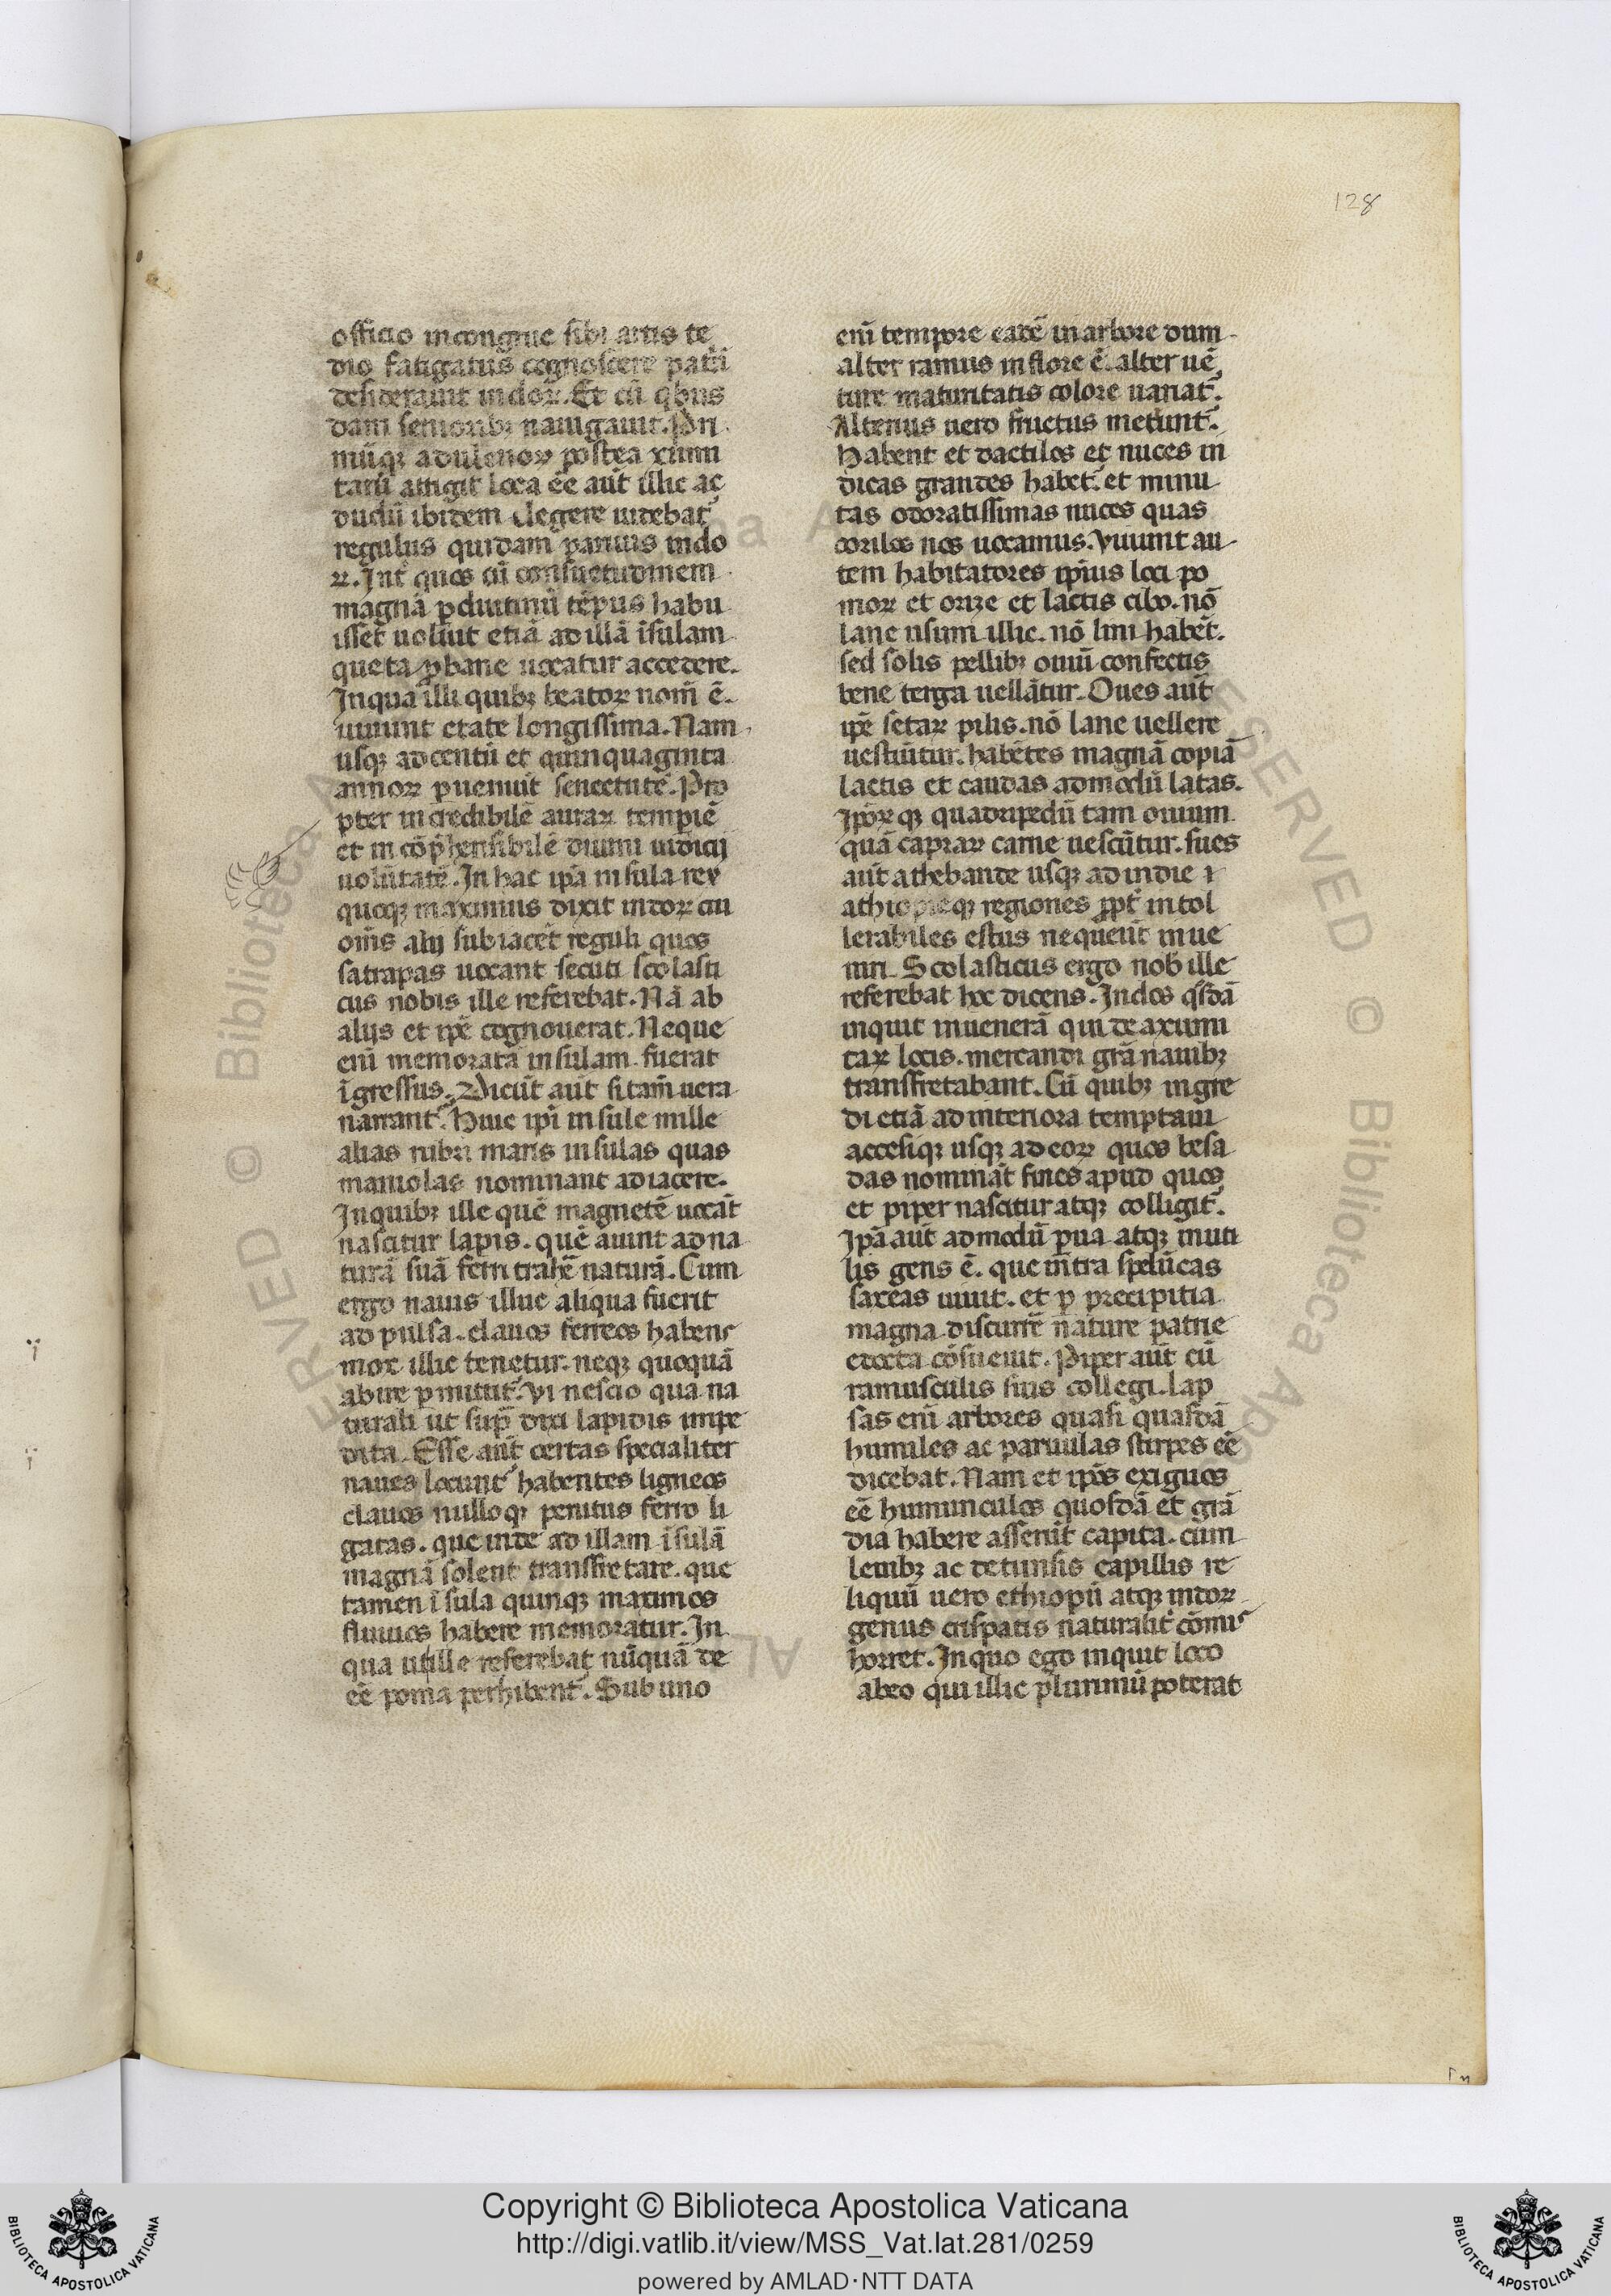 128
officio incongrue sibi artis te
dio fatigatus cognoscere patri
desiderauit indoꝝ. Et cū qͥbus
dam senioribꝫ nauigauit. Pri
mūqꝫ adulenoꝝ postea xumi
tarū attigit loca eē aut̄ illic ac
dudū ibidem degere uidebat᷑
regulus quidam paruus indo
ꝝ. Int̄ quos cū consuetudinem
magnā ꝑ diutinū tēpus habu
isset uoluit etiā ad illā īsulam
que taprobane uocatur accedere.
In qua illi quibꝫ beatoꝝ nom̄ ē.
uiuunt etate longissima. Nam
usqꝫ ad centū et quinquaginta
annoꝝ ꝑuenuit senectutē. Pro
pter incredibilē auraꝝ tempiē
et incōp̄hensibilē diuini iudicij
uolūtatē. In hac ip̄a insula rex
quoqꝫ maximus dixit indoꝝ cui
om̄s alij subiacēt reguli quos
satrapas uocant secuti scolasti
cus nobis ille referebat. Nā ab
alijs et ip̄e cognouerat. Neque
eni memoratā insulam fuerat
īgressus. Dicūt aut̄ si tam̄ uera
narrant᷑. Huic ip̄i insule mille
alias rubri maris insulas quas
maniolas nominant adiacere.
In quibꝫ ille quē magnetē uocāt
nascitur lapis. quē aiunt ad na
turā suā ferri trahē naturā. Cum
ergo nauis illuc aliqua fuerit
ad pulsa. clauos ferreos habens
mox illic tenetur. neqꝫ quoquā
abire ꝑmittit᷑. Vi nescio qua na
turali ut sup̄ dixi lapidis impe
dita. Esse aut̄ certas specialiter
naues locunt᷑ habentes ligneos
clauos nulloqꝫ penitus ferro li
gatas. que inde ad illam īsulā
magnā solent transfretare. que
tamen īsula quinqꝫ maximos
fluuios habere memoratur. In
qua ut ille referebat nūquā de
eē poma perhibent᷑. Sub uno
eni tempore eadē in arbore dum
alter ramus in flore ē. alter uē
ture maturitatis colore uariat᷑.
Alterius uero fructus metunt᷑.
Habent et dactilos et nuces in
dicas grandes habet. et minu
tas odoratissimas nuces quas
corilos nos uocamus. Viuunt au
tem habitatores ip̄ius loci po
moꝝ et orize et lactis cibo. nō
lane usum illic. nō lini habēt.
sed solis pellibꝫ ouiū confectis
bene terga uellātur. Oues aut̄
ip̄e setaꝝ pilis. nō lane uellere
uestiūtur. habētes magnā copiā
lactis et caudas admodū latas.
Ip̄oꝝqꝫ quadrupedū tam ouium
quā capraꝝ carne uescūtur. sues
aut̄ a thebaide usqꝫ ad indie ⁊
athiopieqꝫ regiones ꝓpt̄ intol
lerabiles estus nequeūt inue
niri. Scolasticus ergo nob̄ ille
referebat hoc dicens. Indos qͥsdā
inquit inuenerā qui de axumi
taꝝ locis. mercandi grā nauibꝫ
transfretabant. Cū quibꝫ ingre
di etiā ad interiora temptaui
accessiqꝫ usqꝫ ad eoꝝ quos besa
das nomināt fines apud quos
et piper nascitur atqꝫ colligit᷑.
Ip̄a aut̄ admodū ꝑua atqꝫ inuti
lis gens ē. que int̄ra spelūcas
saxeas uiuit. et ꝑ precipitia
magna discurrē nature patrie
edocta cōsueuit. Piper aut̄ cū
ramusculis suis collegi. lap
sas eni arbores quasi quasdā
humiles ac paruulas stirpes eē
dicebat. Nam et ip̄os exiguos
eē humunculos quosdā et grā
dia habere asserūt capita. cum
leuibꝫ ac detunsis capillis re
liquū uero ethiopū atqꝫ indoꝝ
genus crispatis naturalit̄ comis
horret. In quo ego inquit loco
abeo qui illic plurimū poterat
Copyright © Biblioteca Apostolica Vaticana
http://digi.vatlib.it/view/MSS_Vat.lat.281/0259
powered by AMLAD·NTT DATA